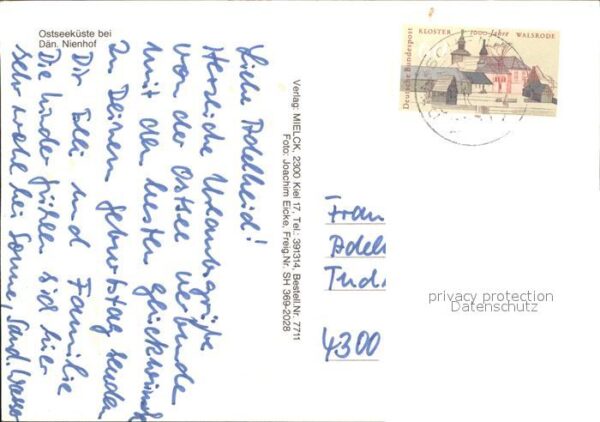 Ostseeküste bei
Dän. Nienhof
Liebe Adelheid!
Herzliche Urlaubsgrüße
von der Ostsee verbunden
mit den besten Glückwünsch
zu Deinem Geburtstag senden
Dir und Familie
Die Kinder fühlen sich hier
sehr wohl bei Sonne, Sand, Wasser
Verlag: MIELCK, 2300 Kiel 17, Tel.: 391314, Bestell.Nr. 7711
Foto: Joachim Eicke, Freig.Nr. SH 369-2028
Deutsche Bundespost
KLOSTER 1000 Jahre WALSRODE
Frau
Adelh
4300
privacy protection
Datenschutz